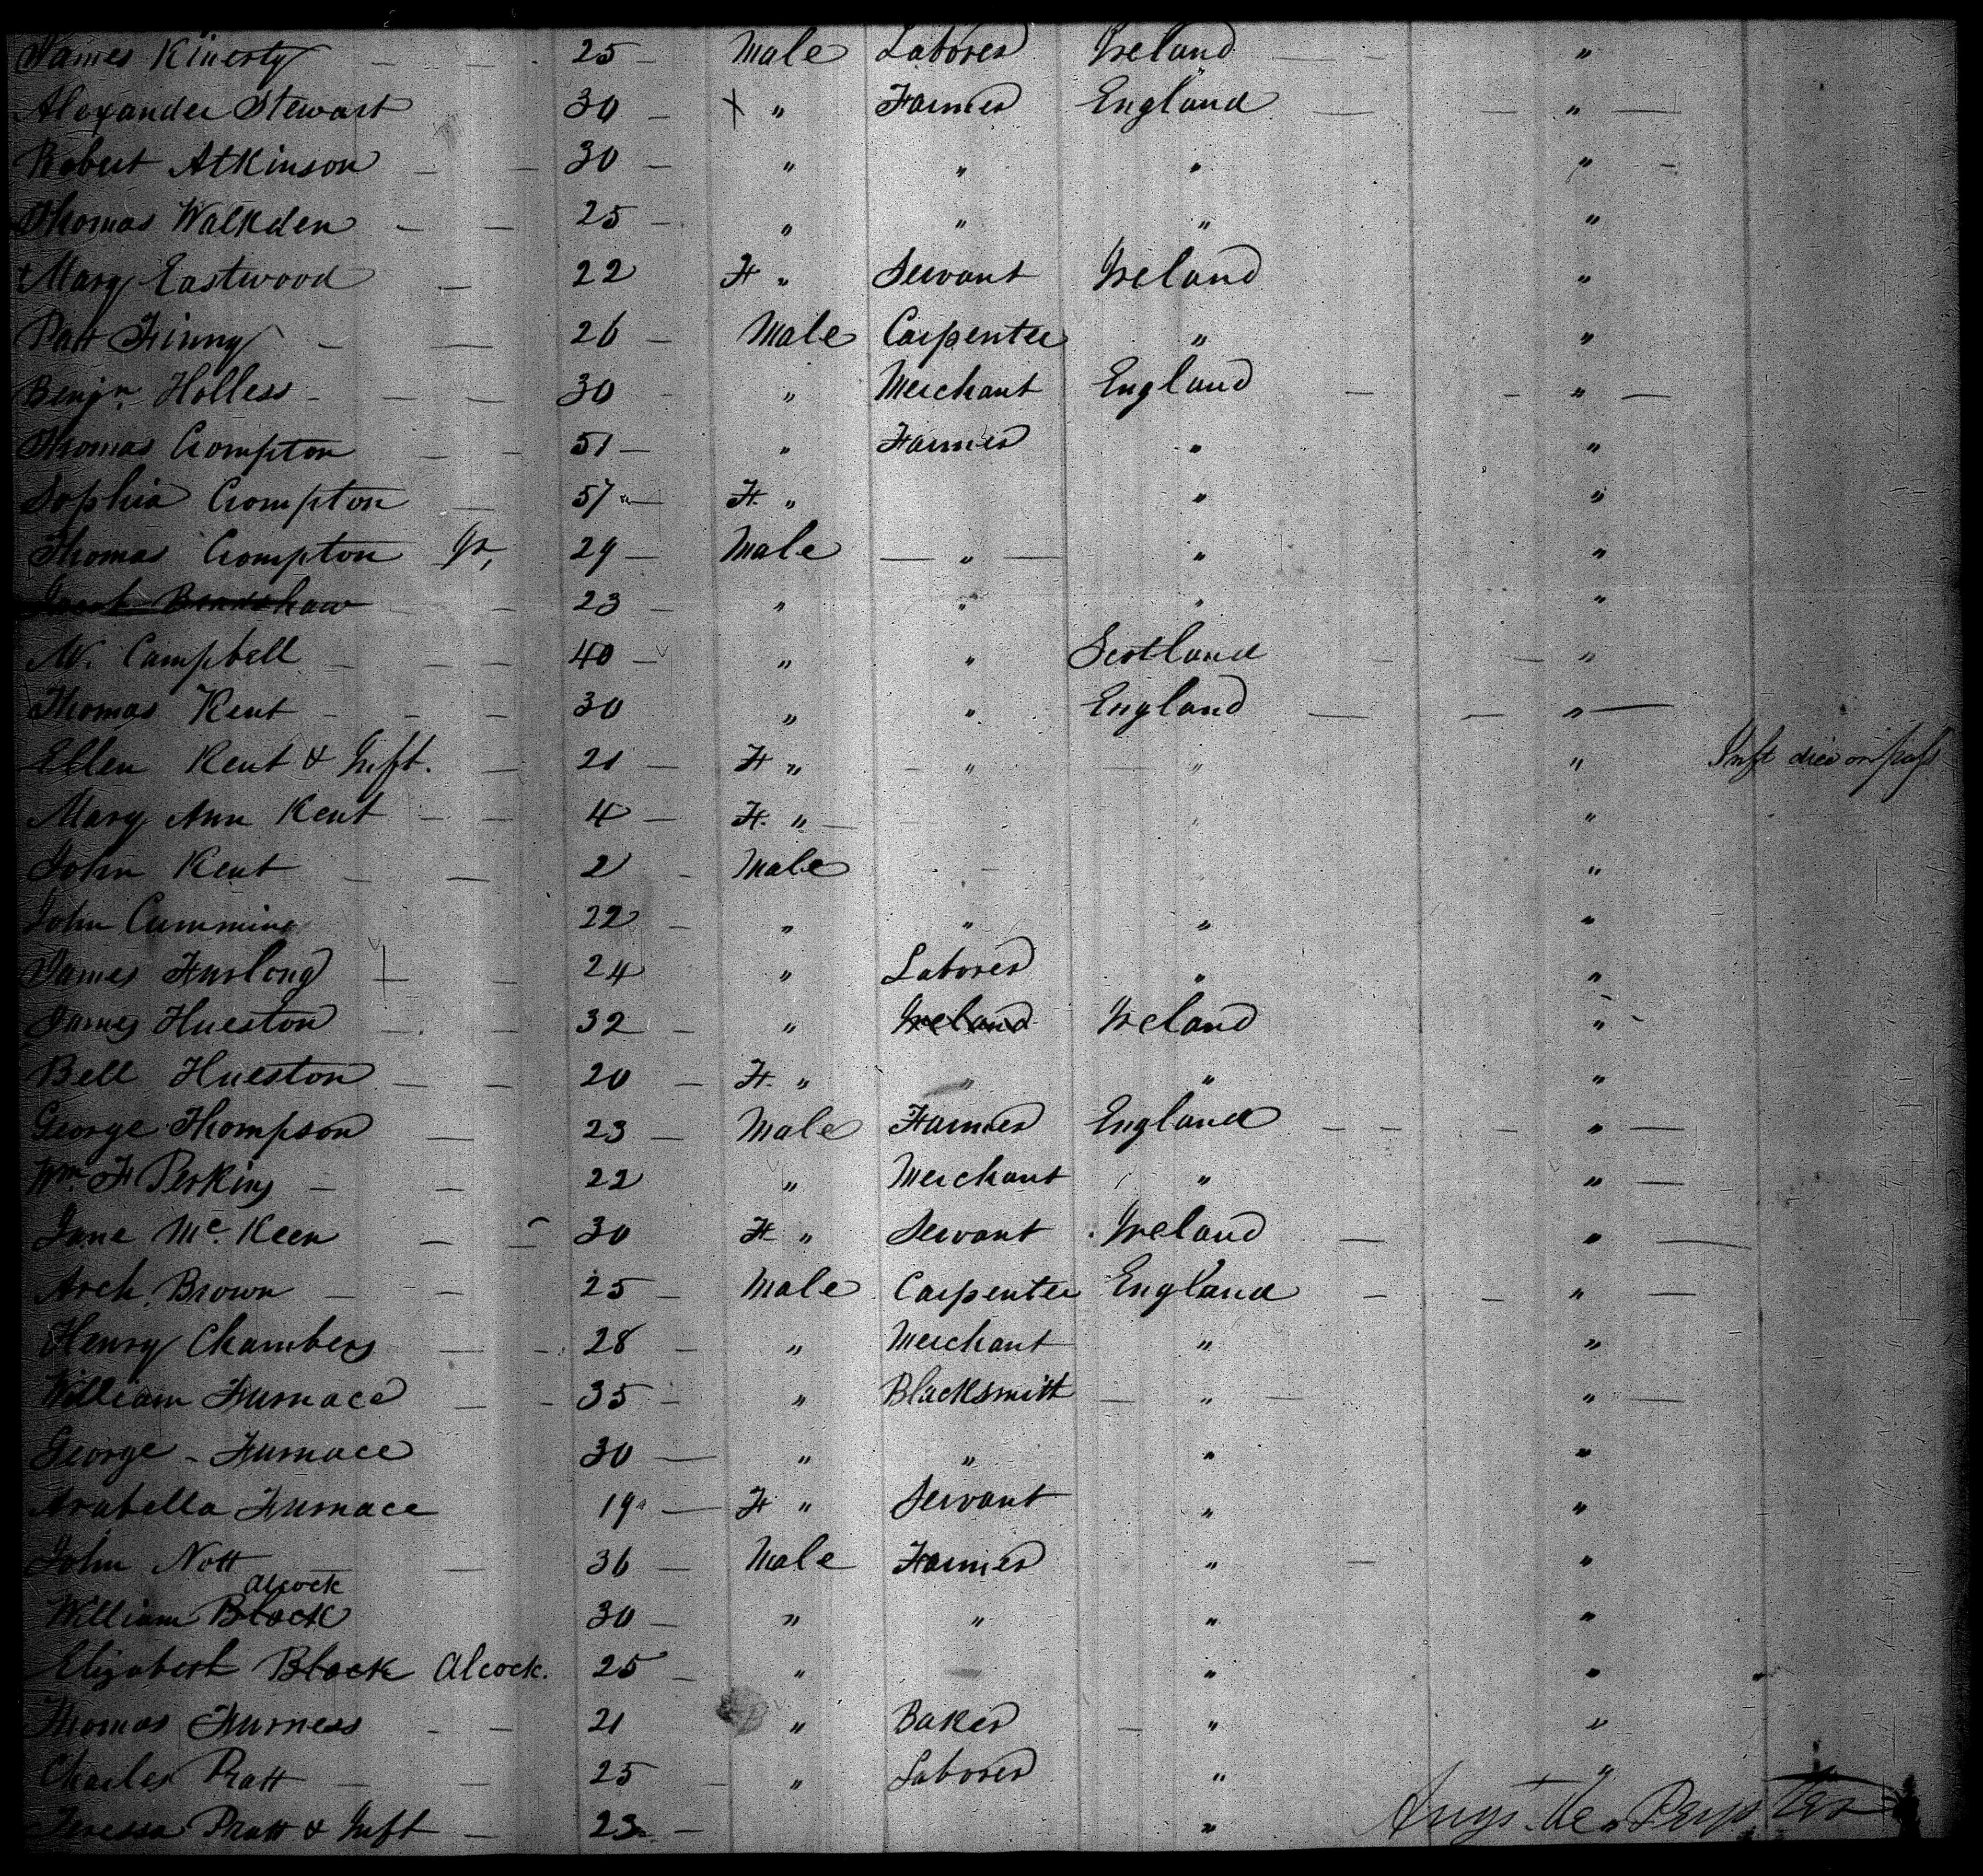 James Kinerty — — 25 — Male Laborer Ireland — — "
Alexander Stewart 30 — X " Farmer England — — " —
Robert Atkinson — — 30 — " " " " —
Thomas Walkden — — 25 — " " " "
+ Mary Eastwood — 22 F " Servant Ireland "
Patt Finny — — 26 — Male Carpenter " "
Benjn. Holless — — — 30 — " Merchant England — — " —
Thomas Crompton — — 51 — " Farmer " "
Sophia Crompton — 57 — F. " " "
Thomas Crompton Jr, 29 — Male — " — " "
23 — " " " "
W. Campbell — — — 40 — " " Scotland — — "
Thomas Kent — — — 30 " " England — — " —
Ellen Kent & Inft. — 21 — F " — " — " " Inft died on pass
Mary Ann Kent — — 4 — F. " — " "
John Kent — — 2 — Male "
John Cumming 22 — " " " "
James Furlong 24 " Laborer " "
James Hueston — — 32 — " Ireland Ireland "
Bell Hueston — — 20 — F. " " " "
George Thompson — 23 — Male Farmer England — — — " —
Wm F Perkins — — 22 " Merchant " " —
Jane Mc. Keen — — 30 F " Servant Ireland — " —
Arch. Brown — — 25 — Male Carpenter England — — " —
Henry Chambers — — 28 — " Merchant " "
William Furnace — — 35 — " Blacksmith — " — " —
George - Furnace 30 — " " " "
Arabella Furnace 19 — F " Servant " "
John Nott — — 36 — Male Farmer " — "
Alcock
William Block 30 — " " " "
Elizabeth Block Alcock. 25 — " " "
Thomas Furness — — 21 " Baker — " "
Charles Pratt — — 25 — " Laborer " "
Teressa Pratt & Inft — 23 — "